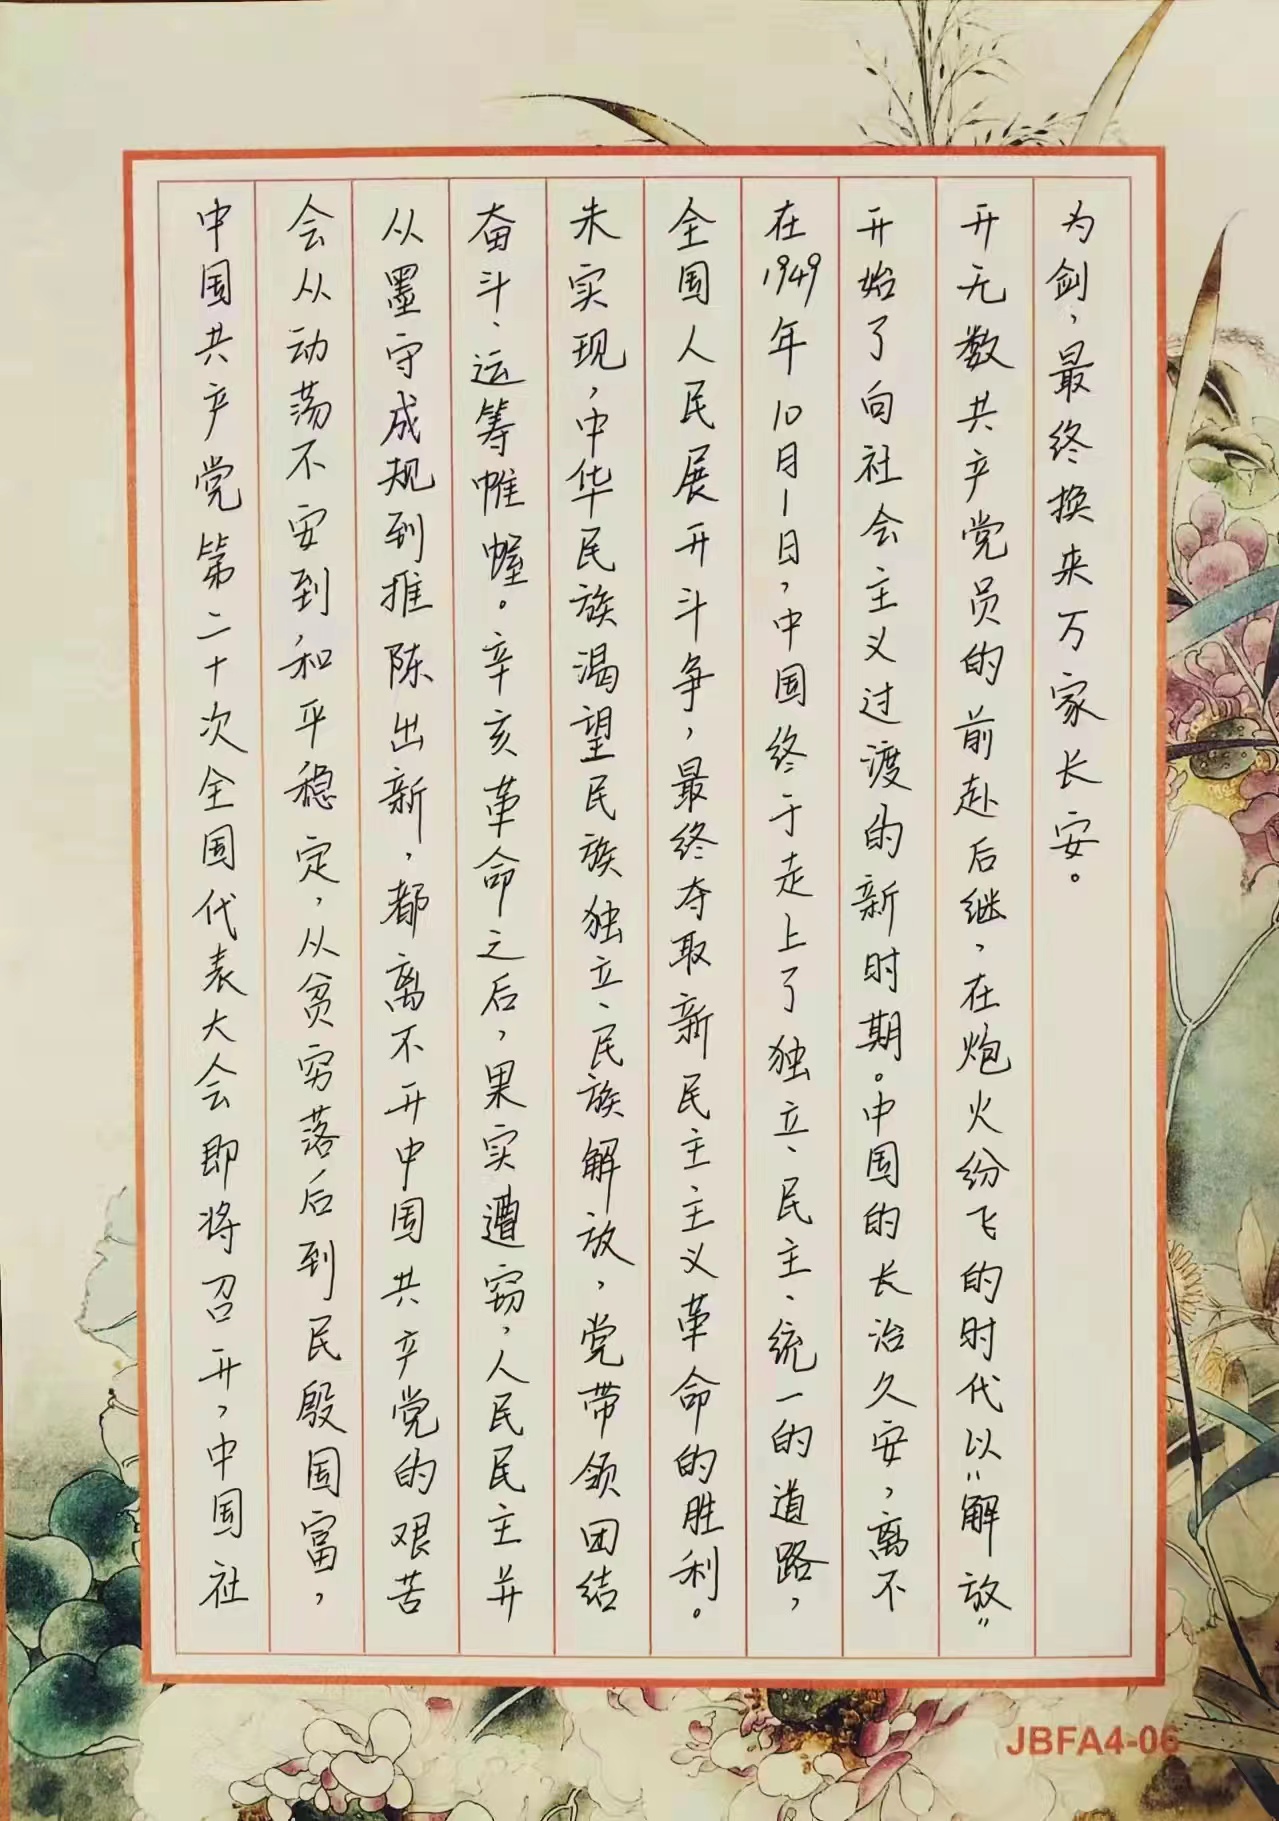 中国共产党第二十次全国代表大会即将召开，中国社
会从动荡不安到和平稳定，从贫穷落后到民殷国富，
从墨守成规到推陈出新，都离不开中国共产党的艰苦
奋斗、运筹帷幄。辛亥革命之后，果实遭窃，人民民主并
未实现，中华民族渴望民族独立、民族解放，党带领团结
全国人民展开斗争，最终夺取新民主主义革命的胜利。
在1949年10月1日，中国终于走上了独立、民主、统一的道路，
开始了向社会主义过渡的新时期。中国的长治久安，离不
开无数共产党员的前赴后继，在炮火纷飞的时代以“解放”
为剑，最终换来万家长安。
JBFA4-06